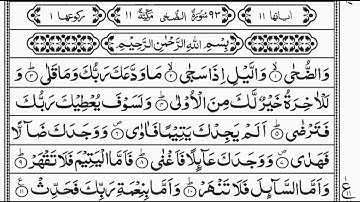 اٰیاتها ۱۱ ۹۳ سُوْرَةُ الضُّحٰى مَكِّيَّةٌ ۱۱ رکوعها ۱
بِسْمِ اللّٰهِ الرَّحْمٰنِ الرَّحِيْمِ
وَالضُّحٰى ۙ۱ وَالَّيْلِ اِذَا سَجٰى ۙ۲ مَا وَدَّعَكَ رَبُّكَ وَمَا قَلٰى ؕ۳ وَ
لَلْاٰخِرَةُ خَيْرٌ لَّكَ مِنَ الْاُوْلٰى ؕ۴ وَلَسَوْفَ يُعْطِيْكَ رَبُّكَ
فَتَرْضٰى ؕ۵ اَلَمْ يَجِدْكَ يَتِيْمًا فَاٰوٰى ۪۶ وَوَجَدَكَ ضَآلًّا
فَهَدٰى ۪۷ وَوَجَدَكَ عَآئِلًا فَاَغْنٰى ؕ۸ فَاَمَّا الْيَتِيْمَ فَلَا تَقْهَرْ ؕ۹
وَاَمَّا السَّآئِلَ فَلَا تَنْهَرْ ؕ۱۰ وَاَمَّا بِنِعْمَةِ رَبِّكَ فَحَدِّثْ ۱۱